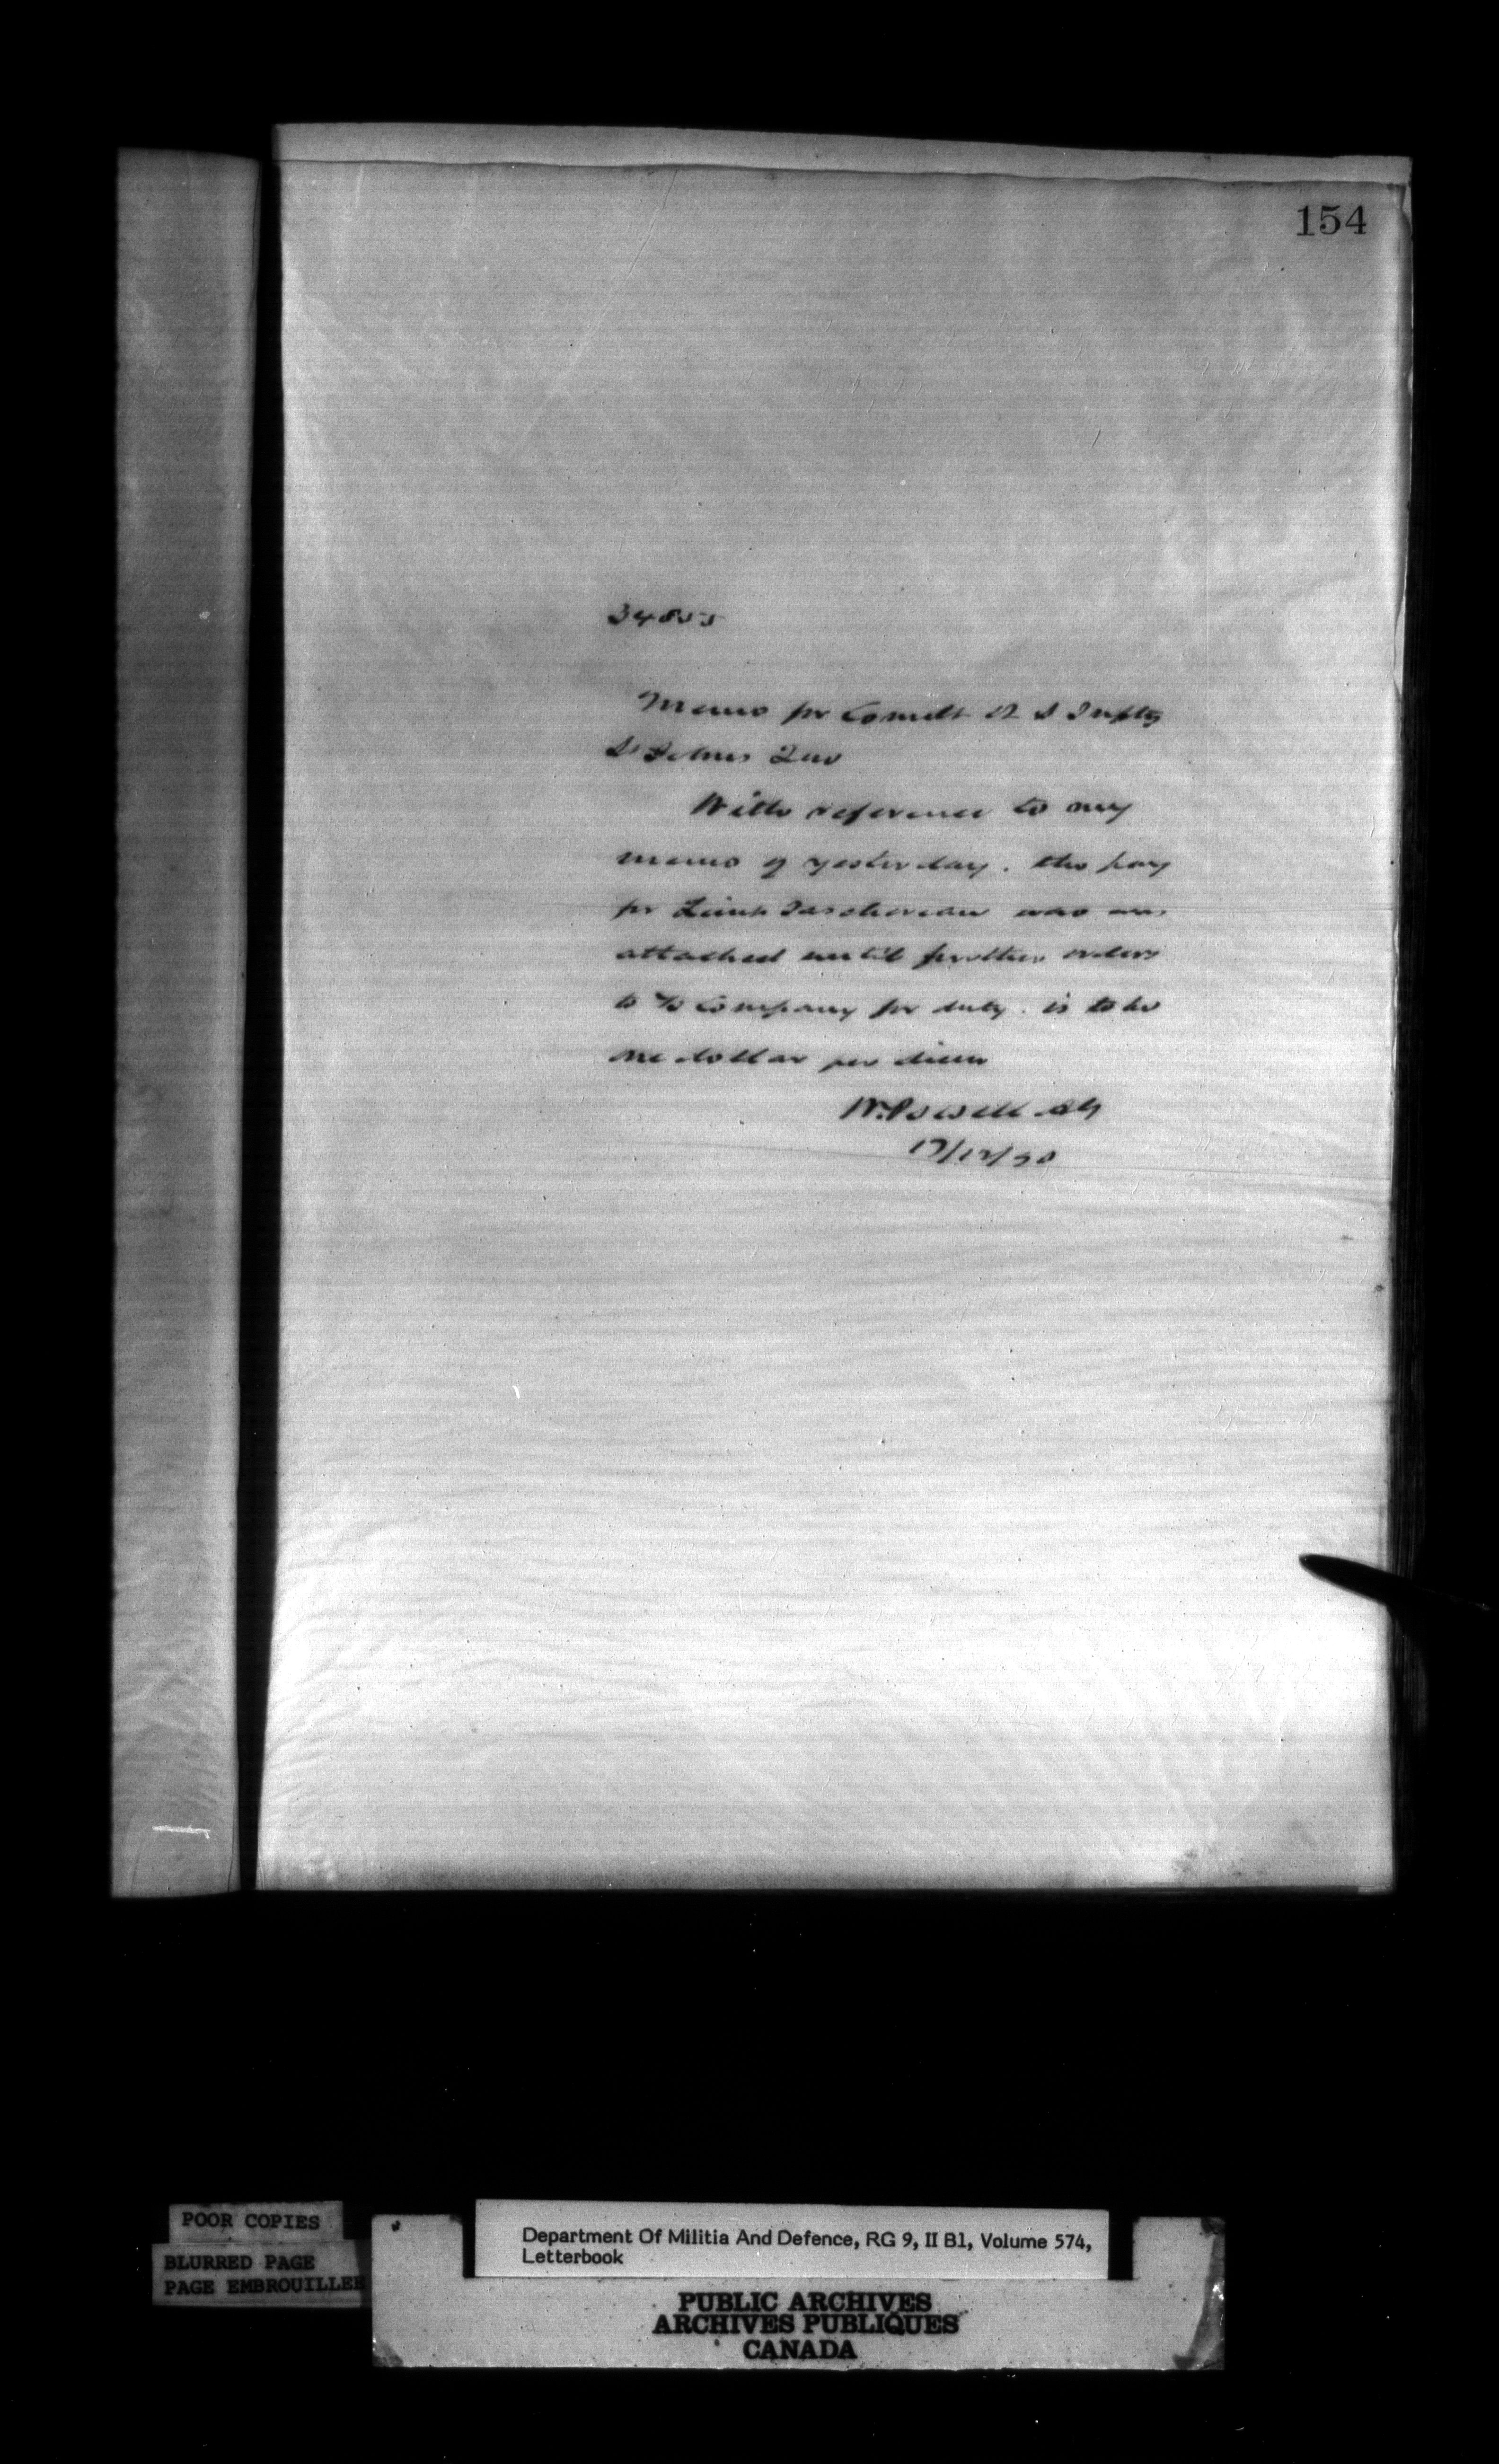 154
34855
Memo for Comdt R S Infty
St Johns Que
With reference to my
memo of yesterday. the pay
for Lieut Taschereau who was
attached until further orders
to B Company for duty. is to be
one dollar per diem
W. Powell AG
17/12/90
POOR COPIES
BLURRED PAGE
PAGE EMBROUILLEE
Department Of Militia And Defence, RG 9, II B1, Volume 574,
Letterbook
PUBLIC ARCHIVES
ARCHIVES PUBLIQUES
CANADA